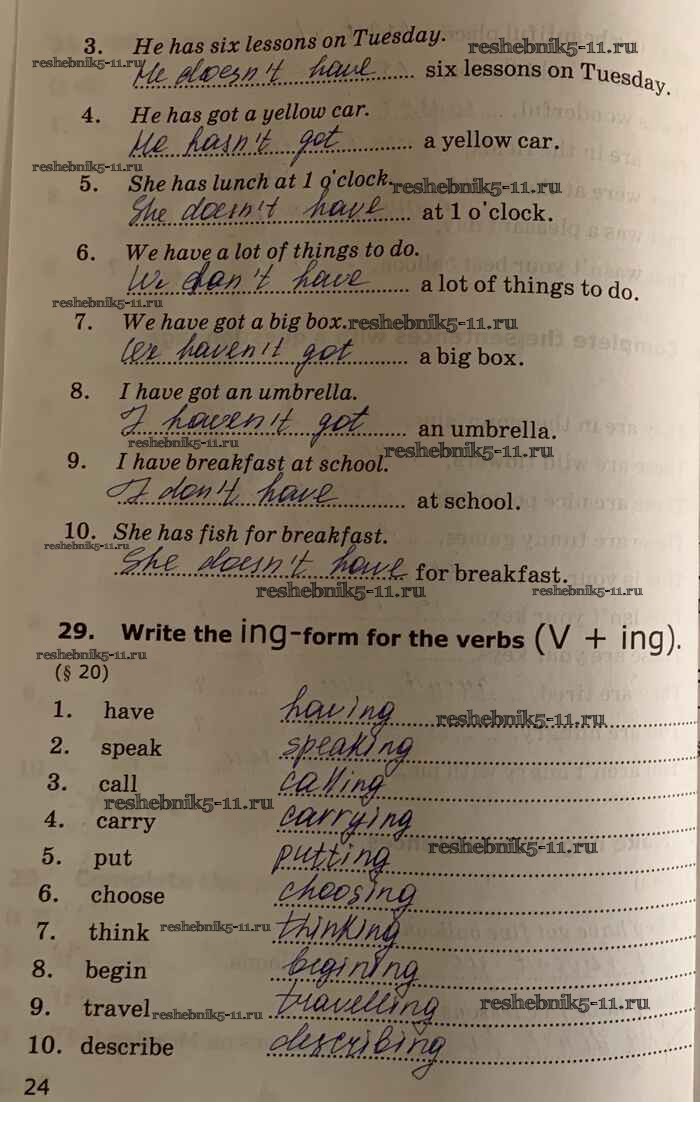 3. He has six lessons on Tuesday. reshebnik5-11.ru
reshebnik5-11.ru He doesn't have six lessons on Tuesday.
4. He has got a yellow car.
He hasn't got a yellow car.
reshebnik5-11.ru
5. She has lunch at 1 o'clock. reshebnik5-11.ru
She doesn't have at 1 o'clock.
6. We have a lot of things to do.
We don't have a lot of things to do.
reshebnik5-11.ru
7. We have got a big box. reshebnik5-11.ru
We haven't got a big box.
8. I have got an umbrella.
I haven't got an umbrella.
reshebnik5-11.ru reshebnik5-11.ru
9. I have breakfast at school.
I don't have at school.
10. She has fish for breakfast.
reshebnik5-11.ru
She doesn't have for breakfast.
reshebnik5-11.ru reshebnik5-11.ru
29. Write the ing-form for the verbs (V + ing).
reshebnik5-11.ru
(§ 20)
1. have having reshebnik5-11.ru
2. speak speaking
3. call calling
reshebnik5-11.ru
4. carry carrying
5. put putting reshebnik5-11.ru
6. choose choosing
7. think reshebnik5-11.ru thinking
8. begin begining
9. travel reshebnik5-11.ru travelling reshebnik5-11.ru
10. describe describing
24